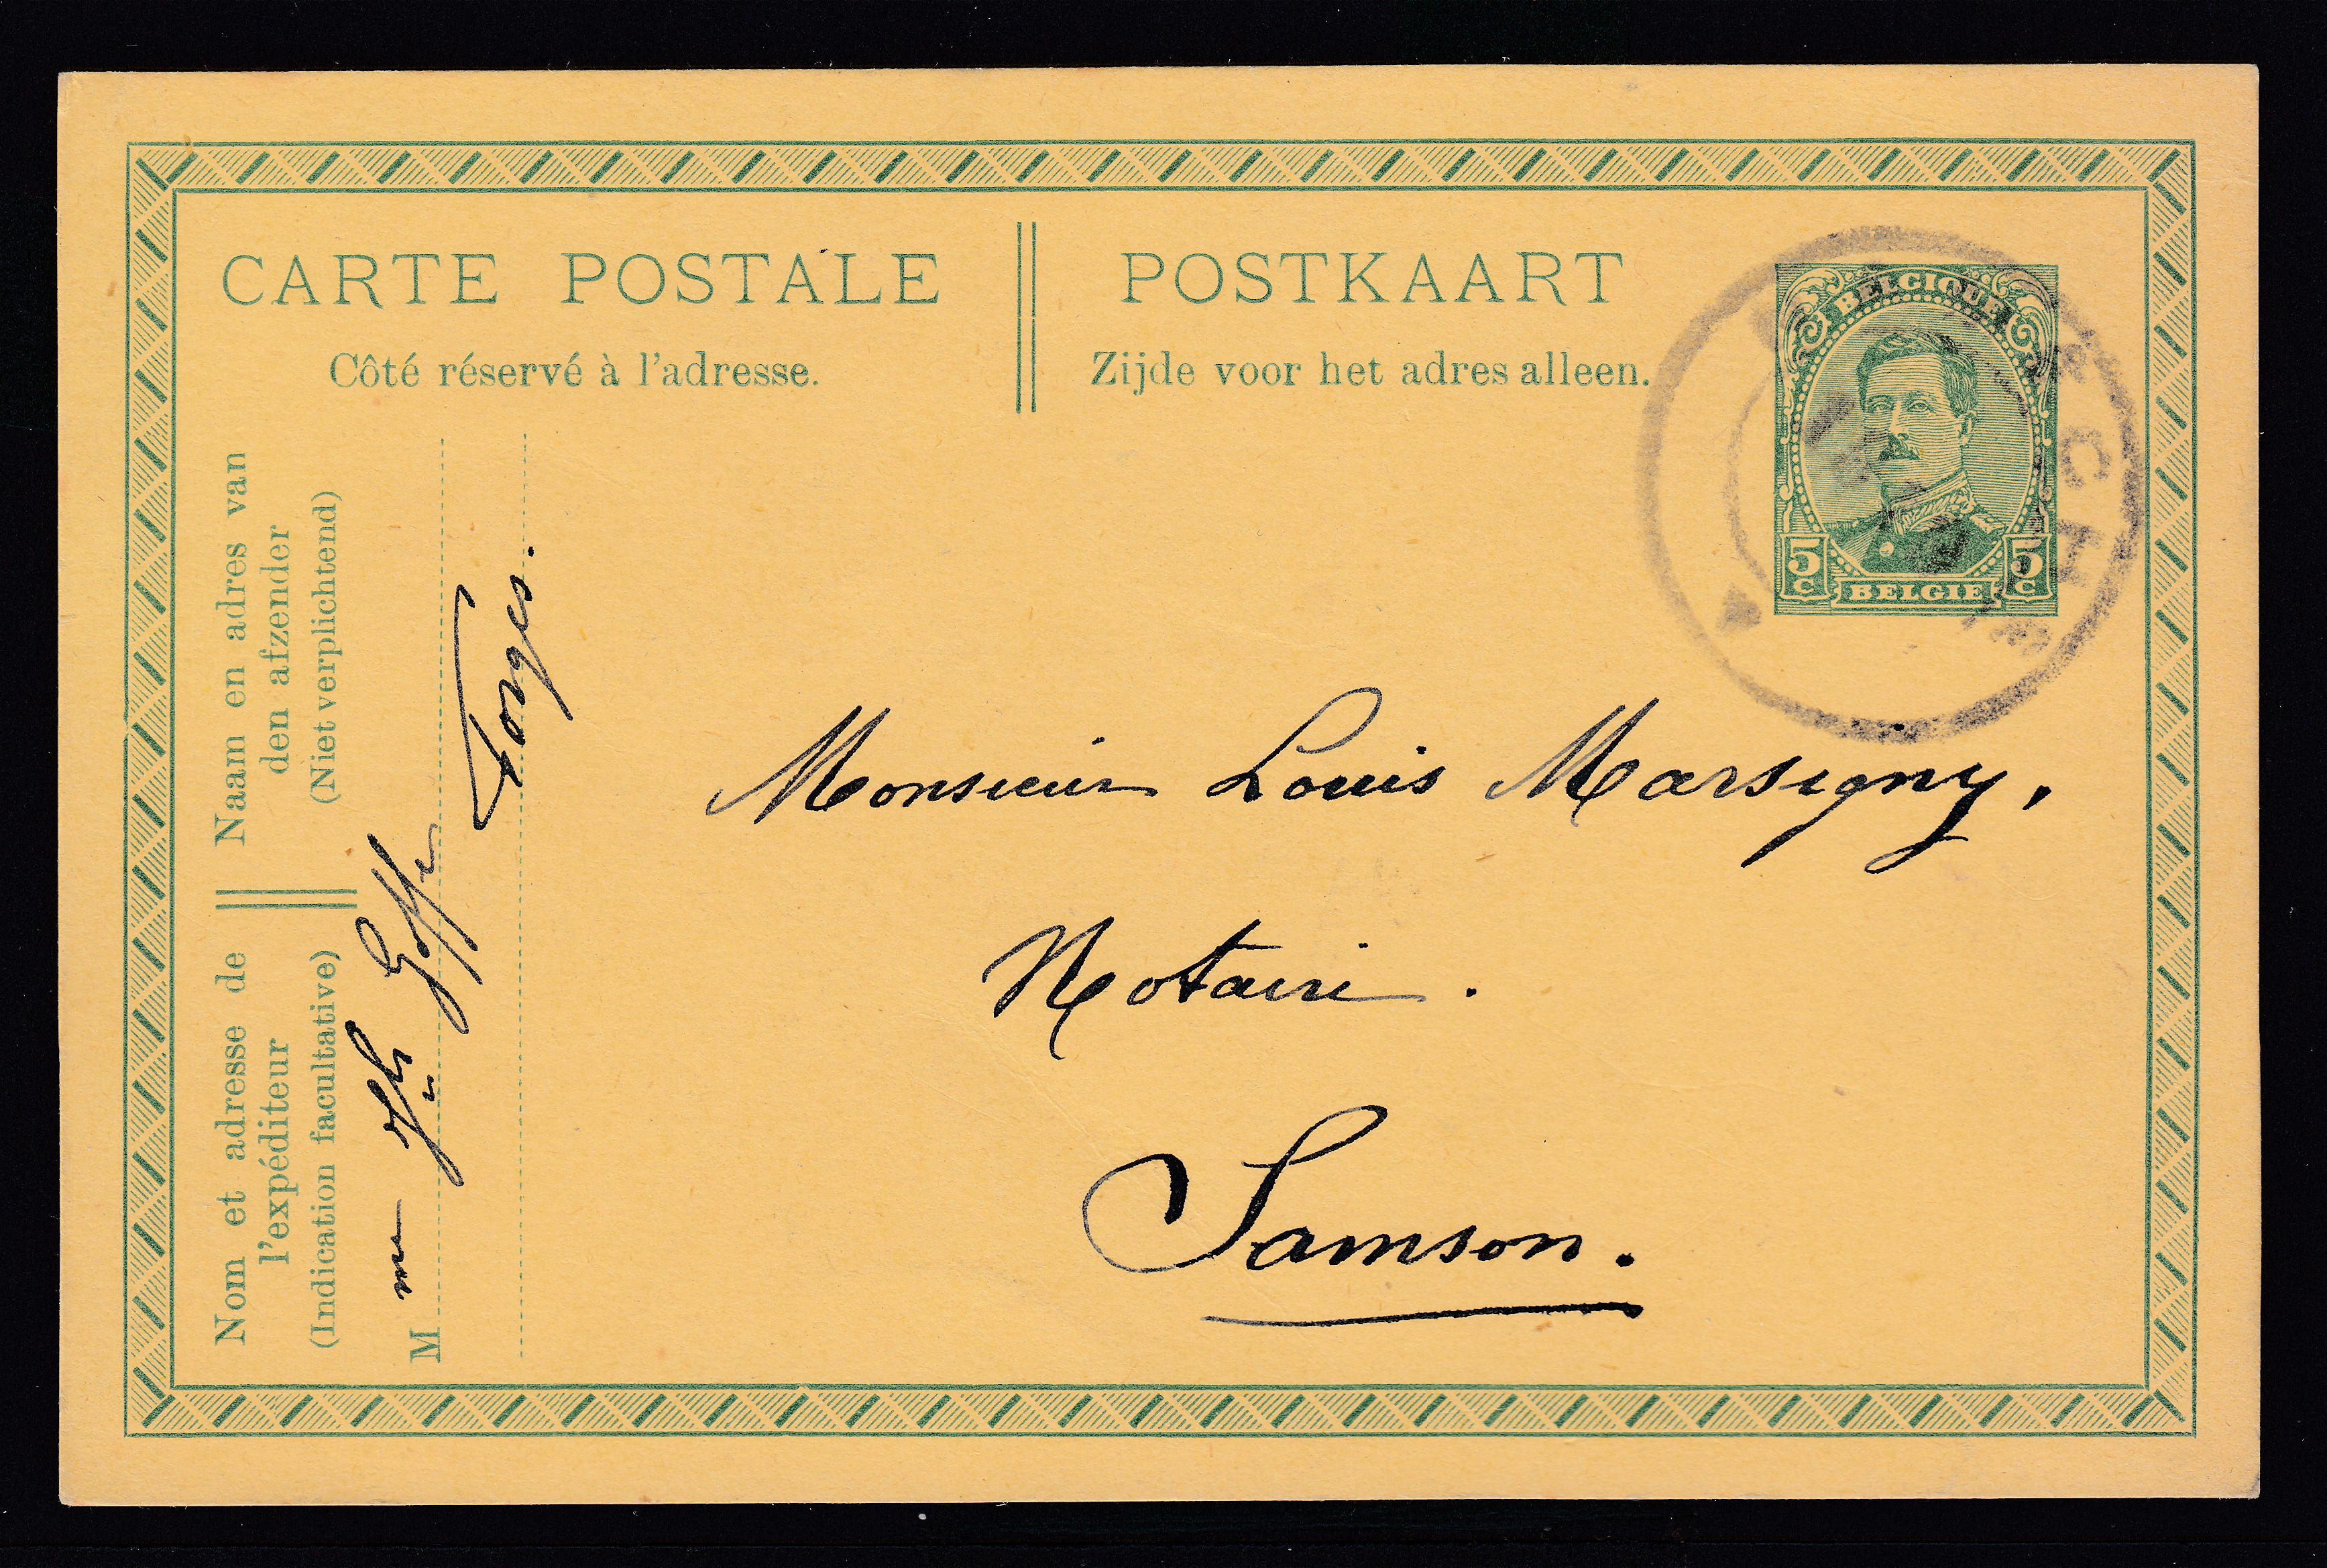 CARTE POSTALE
Côté réservé à l'adresse.
POSTKAART
Zijde voor het adres alleen.
BELGIQUE
5 C
BELGIE
5 C
Naam en adres van
den afzender
(Niet verplichtend)
Nom et adresse de
l'expéditeur
(Indication facultative)
Mme Goffe
Forges.
Monsieur Louis Marsigny,
Notaire.
Samson.